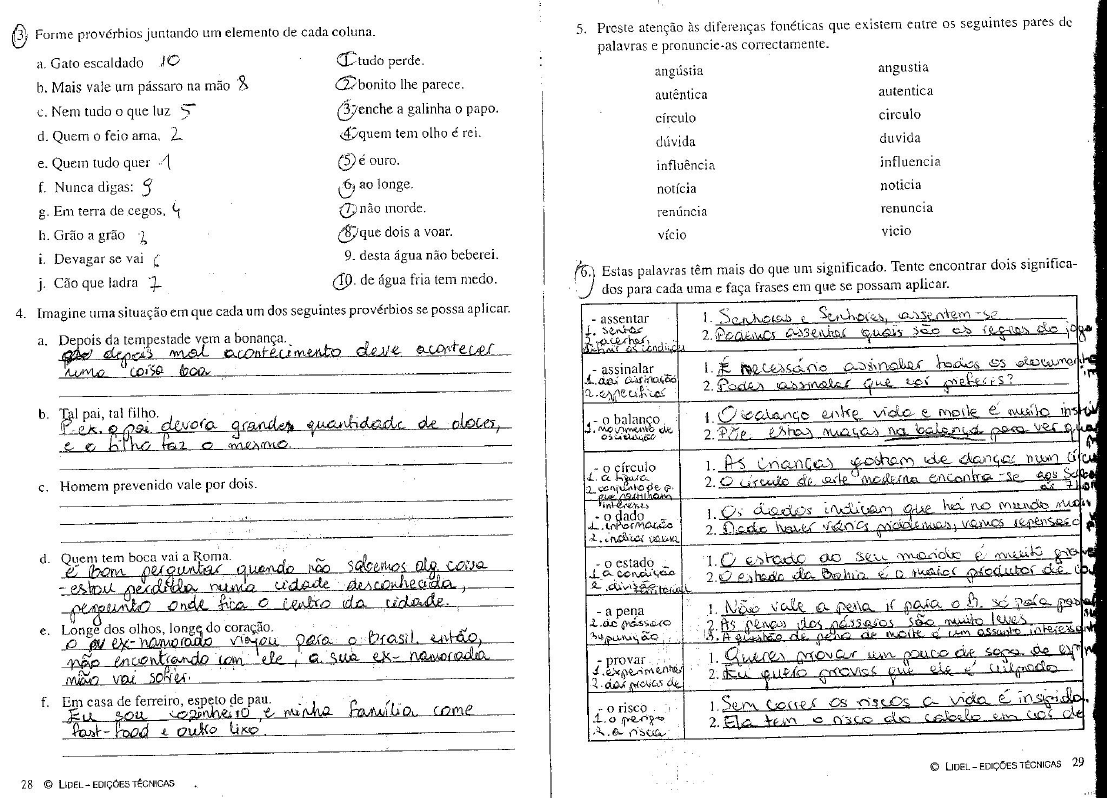 3. Forme provérbios juntando um elemento de cada coluna.
a. Gato escaldado 10
1. tudo perde.
b. Mais vale um pássaro na mão 8
2. bonito lhe parece.
c. Nem tudo o que luz 5
3. enche a galinha o papo.
d. Quem o feio ama, 2
4. quem tem olho é rei.
e. Quem tudo quer 1
5. é ouro.
f. Nunca digas: 9
6. ao longe.
g. Em terra de cegos, 4
7. não morde.
h. Grão a grão 3
8. que dois a voar.
i. Devagar se vai 6
9. desta água não beberei.
j. Cão que ladra 7
10. de água fria tem medo.
4. Imagine uma situação em que cada um dos seguintes provérbios se possa aplicar.
a. Depois da tempestade vem a bonança.
depois mal acontecimento deve acontecer
numa coisa boa
b. Tal pai, tal filho.
P. ex. o pai devora grandes quantidade de doces,
e o filho faz o mesmo.
c. Homem prevenido vale por dois.
d. Quem tem boca vai a Roma.
é bom perguntar quando não sabemos alg. coisa
- estou perdida numa cidade desconhecida,
pergunto onde fica o centro da cidade.
e. Longe dos olhos, longe do coração.
o ex-namorado viajou para o Brasil então,
não encontrando com ele, a sua ex-namorada
não vai sofrer.
f. Em casa de ferreiro, espeto de pau.
Eu sou cozinheiro, e minha família come
fast-food e outro lixo.
28 © LIDEL – EDIÇÕES TÉCNICAS
5. Preste atenção às diferenças fonéticas que existem entre os seguintes pares de
palavras e pronuncie-as correctamente.
angústia angustia
autêntica autentica
círculo circulo
dúvida duvida
influência influencia
notícia noticia
renúncia renuncia
vício vicio
6. Estas palavras têm mais do que um significado. Tente encontrar dois significa-
dos para cada uma e faça frases em que se possam aplicar.
- assentar
1. sentar
1. Senhoras e Senhores, assentem-se
2. Podemos assentar quais são as regras do jogo
- assinalar
2. especificar
1. É necessário assinalar todos os
2. Podes assinalar que cor preferes?
- o balanço
1. movimento de
oscilação
1. O balanço entre vida e morte é muito
2. Põe estas maçãs na balança para ver
- o círculo
1. a figura
2. conjunto de p.
que partilham
interesses
1. As crianças gostam de dançar num
2. O círculo de arte moderna encontra-se aos
- o dado
1. informação
1. Os dados indicam que há no mundo mais
2. Dado haver vários problemas, vamos
- o estado
1. a condição
2. divisão territorial
1. O estado do seu marido é muito grave
2. O estado da Bahia é o maior produtor de
- a pena
2. do pássaro
3. punição
1. Não vale a pena ir para o B. só para
2. As penas dos pássaros são muito leves
3. A questão de pena de morte é um assunto interessante
- provar
1. experimentar
2. dar provas de
1. Queres provar um pouco de sopa de
2. Eu quero provas que ele é culpado
- o risco
1. o perigo
2. a risca
1. Sem correr os riscos a vida é insípida.
2. Ela tem o risco do cabelo em
© LIDEL – EDIÇÕES TÉCNICAS 29